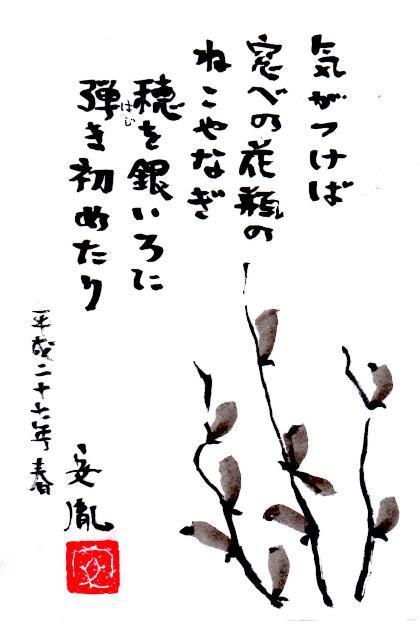 気がつけば
窓べの花瓶の
ねこやなぎ
穂を銀いろに
弾き初めたり
はじ
平成二十七年春
安胤